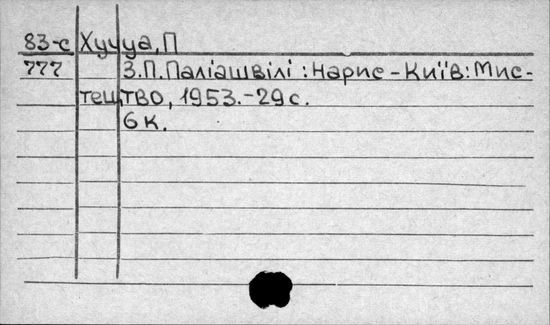 83-с Хучуа, П
777 З.П.Паліашвілі : Нарис - Київ: Мис-
тецтво, 1953.-29 с.
6 к.